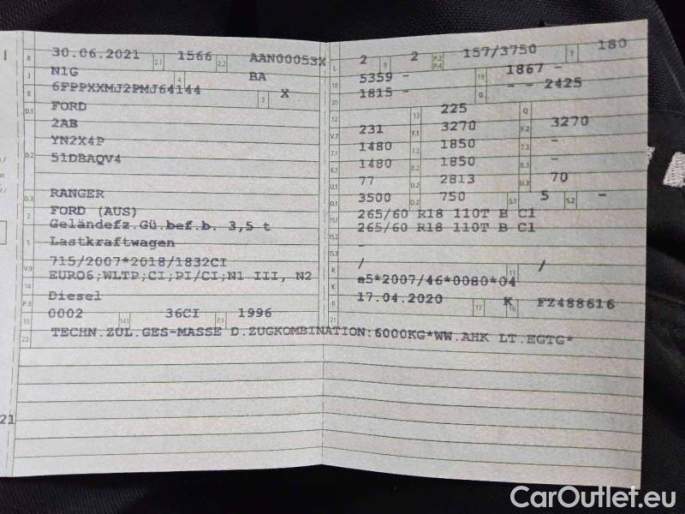 30.06.2021 1566 AAN00053X
N1G BA
6FPPXXMJ2PMJ64144 X
FORD
2AB
YN2X4P
51DBAQV4
RANGER
FORD (AUS)
Geländefz.Gü.bef.b. 3,5 t
Lastkraftwagen
715/2007*2018/1832CI
EURO6;WLTP;CI;PI/CI;N1 III, N2
Diesel
0002 36CI 1996
TECHN.ZUL.GES-MASSE D.ZUGKOMBINATION:6000KG*WW.AHK LT.EGTG*
2 2 157/3750 180
5359 - 1867 -
1815 - - - 2425
225
231 3270 3270
1480 1850 -
1480 1850 -
77 2813 70
3500 750 5 -
265/60 R18 110T B C1
265/60 R18 110T B C1
-
/ /
e5*2007/46*0080*04
17.04.2020 K FZ488616
21
CarOutlet.eu